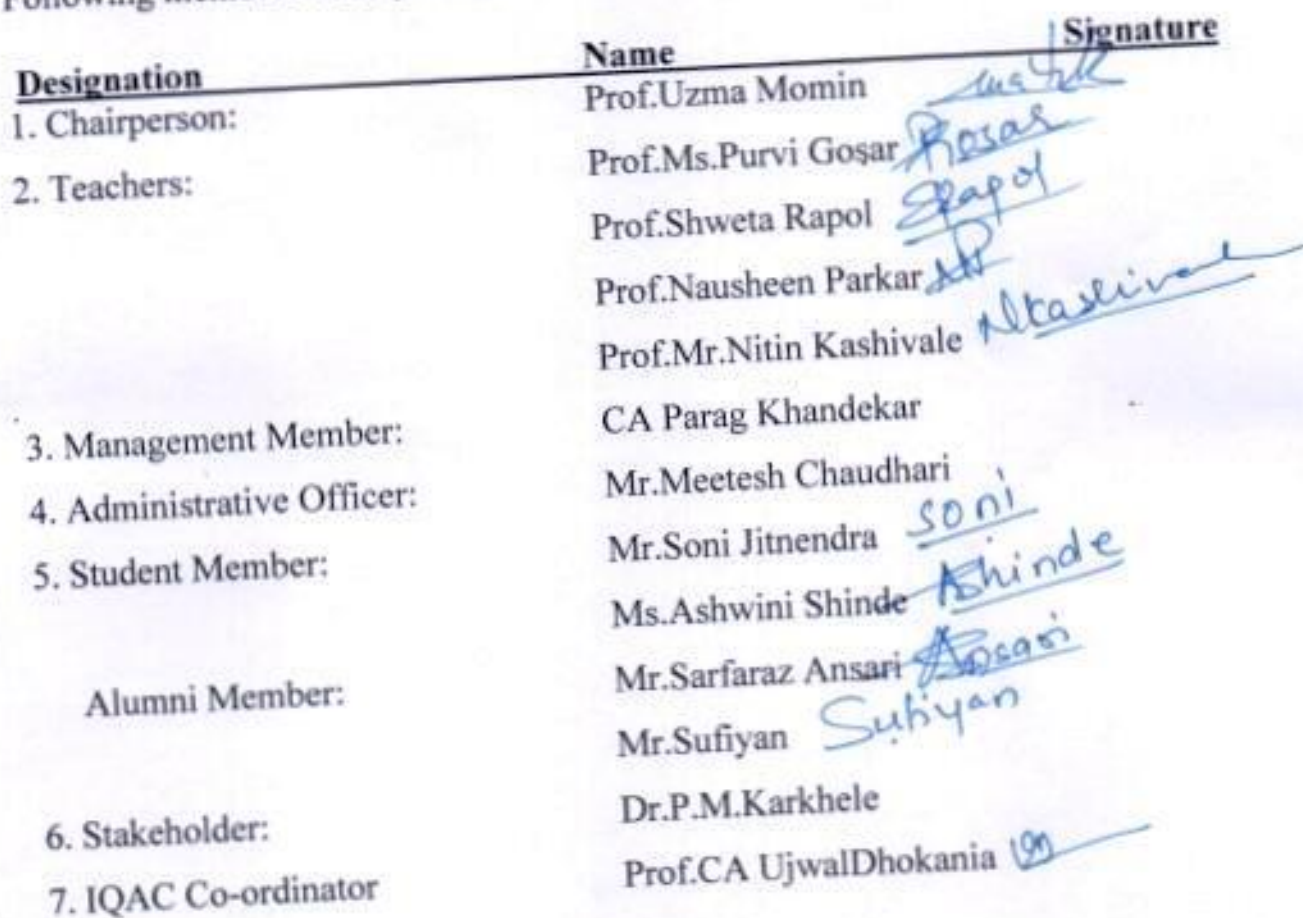 Following
Designation Name Signature
1. Chairperson: Prof.Uzma Momin
2. Teachers: Prof.Ms.Purvi Gosar
Prof.Shweta Rapol Rapol
Prof.Nausheen Parkar
Prof.Mr.Nitin Kashivale NKashivale
3. Management Member: CA Parag Khandekar
4. Administrative Officer: Mr.Meetesh Chaudhari
5. Student Member: Mr.Soni Jitnendra soni
Ms.Ashwini Shinde AShinde
Alumni Member: Mr.Sarfaraz Ansari Ansari
Mr.Sufiyan Sufiyan
6. Stakeholder: Dr.P.M.Karkhele
7. IQAC Co-ordinator Prof.CA UjwalDhokania